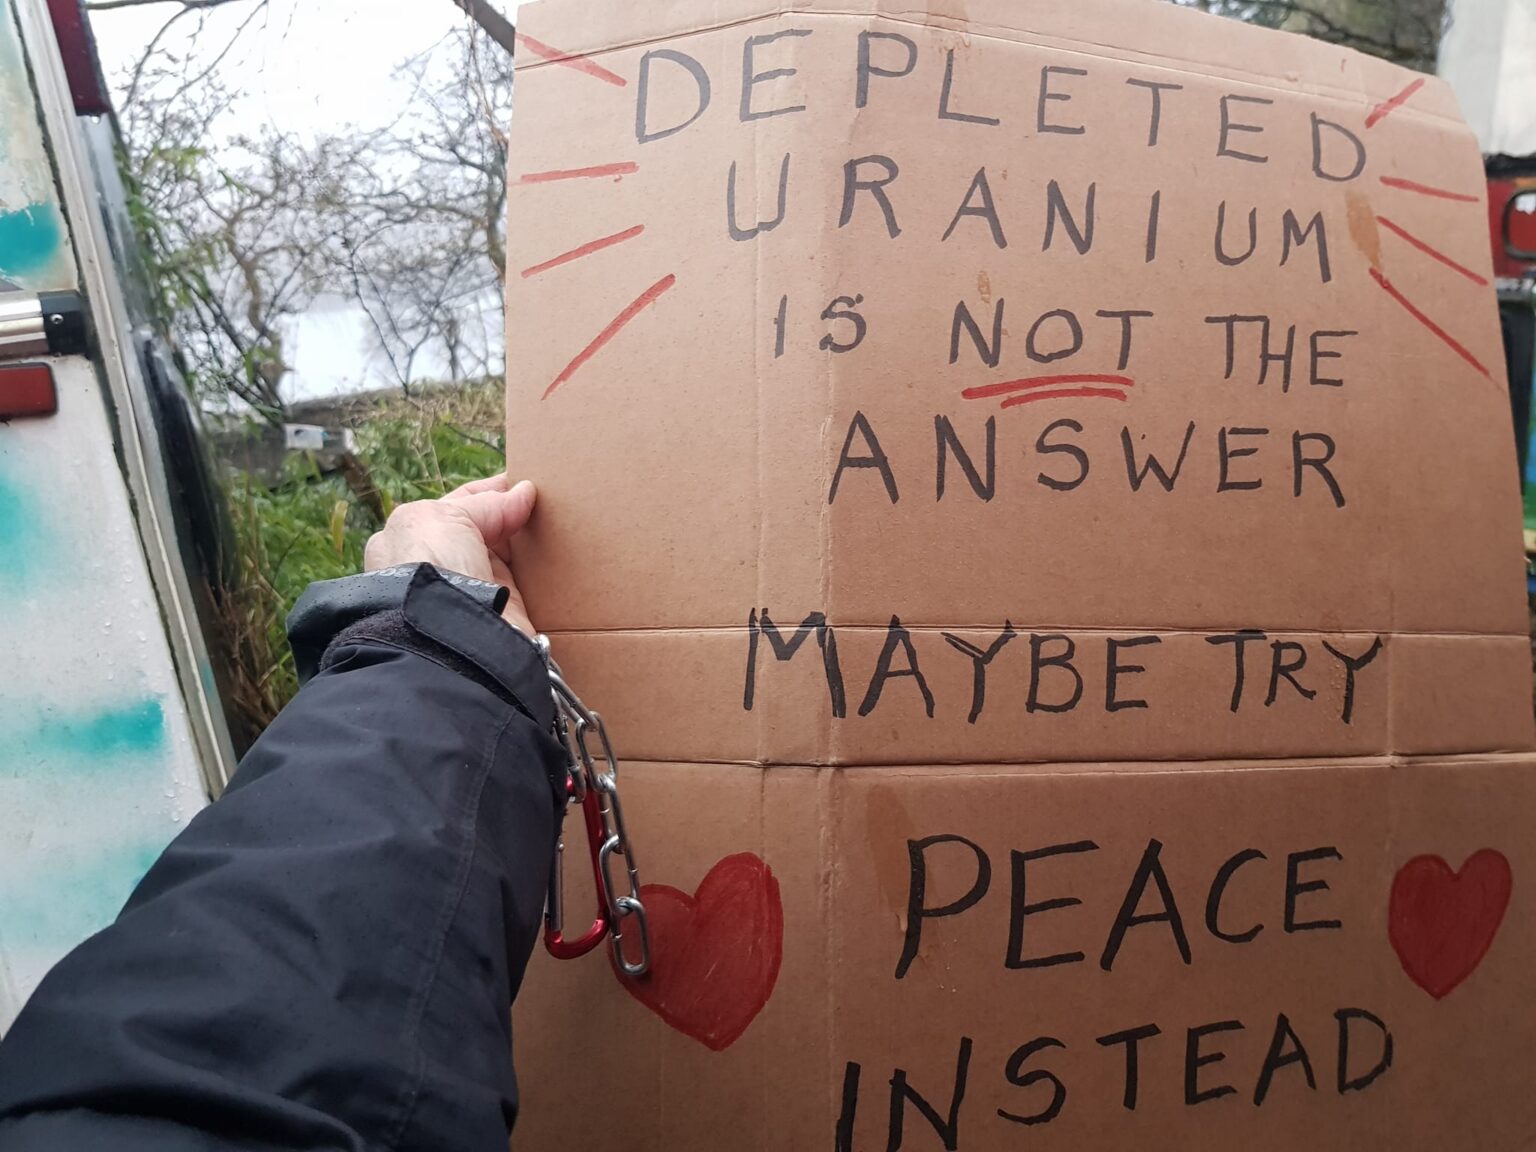 DEPLETED
URANIUM
IS NOT THE
ANSWER
MAYBE TRY
PEACE
INSTEAD